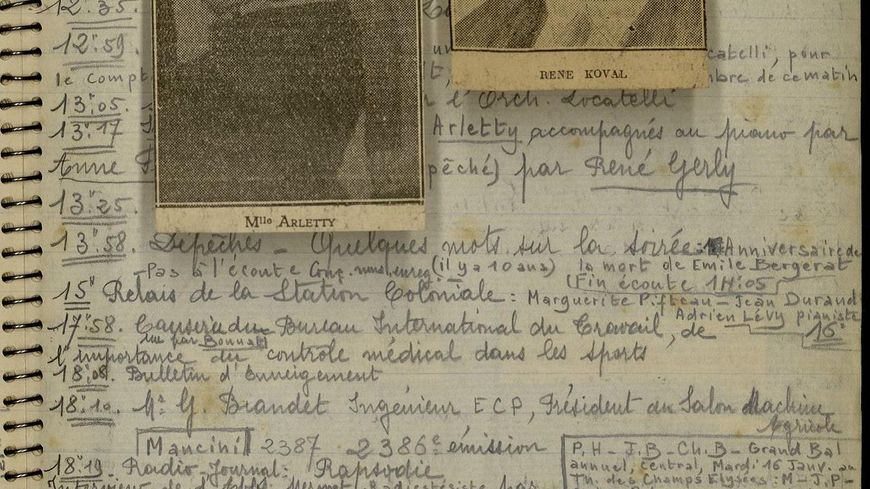 12.35.
12.59. catelli, pour
le Compt mbre de ce matin
RENE KOVAL
13.05. l'Orch. Locatelli
13.17 Arletty, accompagnés au piano par
Anne pêché) par René Gerly
13.25.
Mlle ARLETTY
13.58. Dépêches - Quelques mots sur la soirée: Anniversaire de
Pas à l'écoute (il y a 10 ans) la mort de Emile Bergerat
(Fin écoute 14.05)
15 Relais de la Station Coloniale: Marguerite Jean Durand
Adrien Lévy pianiste
17.58. Causerie du Bureau International du Travail, de 16
lu par Bonnat
l'importance du contrôle médical dans les sports
18.08. Bulletin d'Enneigement
18.10. Mr G. Brandet Ingénieur E C P, Président du Salon Machine
Agricole
Mancini 2387 - 2386e émission
18.19. Radio-Journal: Rapsodie
Interview de par
P. H - J. B - Ch. B - Grand Bal
annuel, central, Mardi 16 Janv. au
Th. des Champs Elysées: M - J. P -